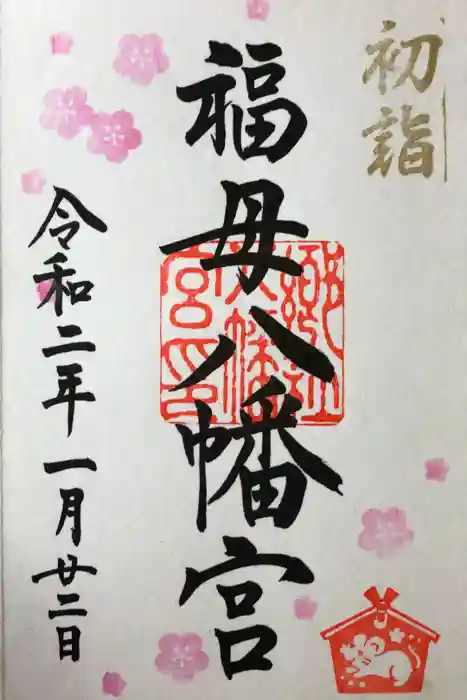 初詣
福母八幡宮
令和二年一月廿二日